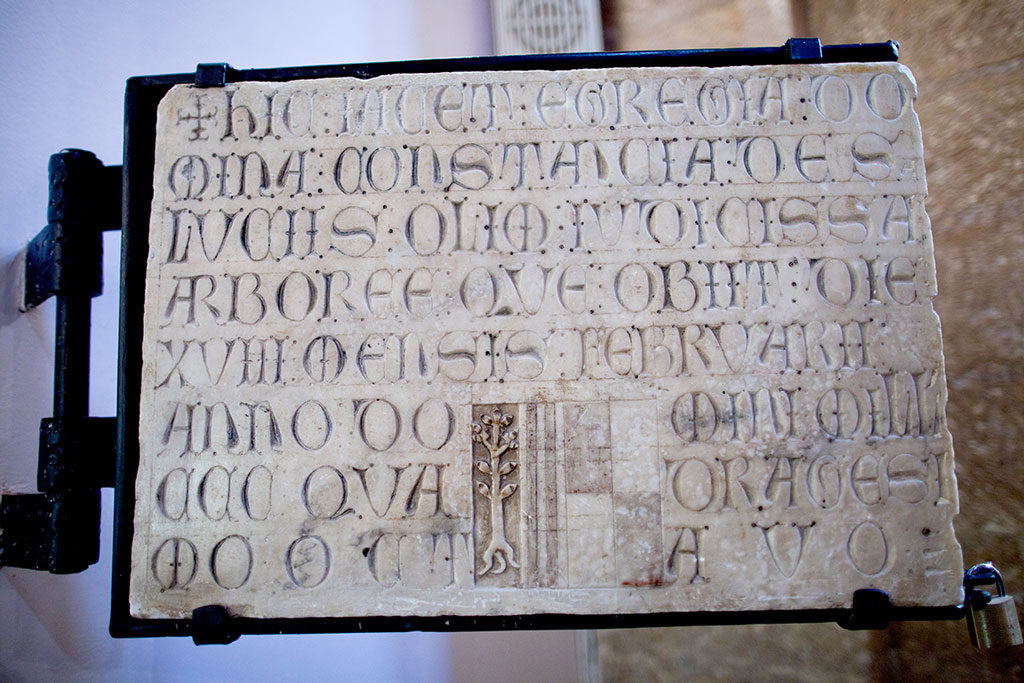 ✠ HIC : IACET : EGREGIA : DO
MINA : CONSTANCIA : DE SA
LUCIIS : OLIM : IUDICISSA
ARBOREE QUE : OBIIT : DIE
XVIII MENSIS : FEBRUARII :
ANNO DO MINI MILL
CCC QUA DRAGESI
MO O CT AVO